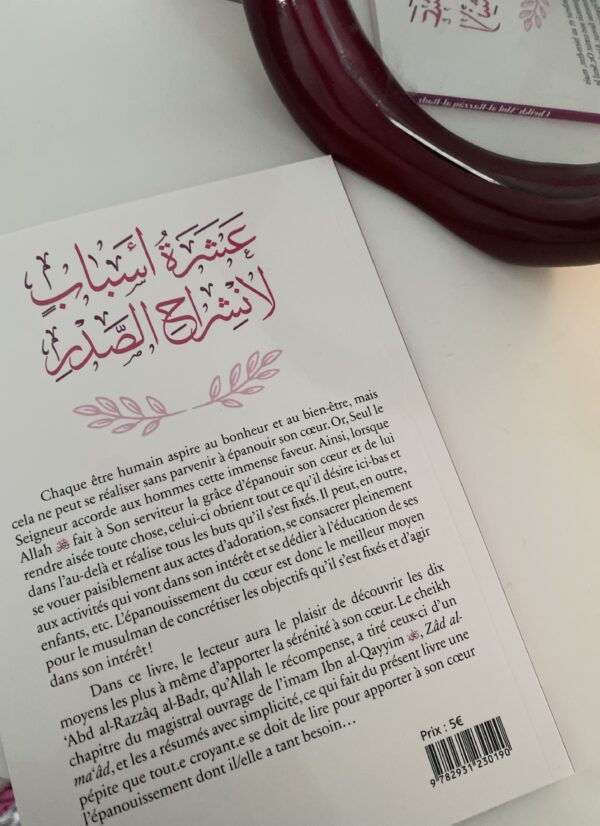 عَشَرَةُ أَسْبَابٍ
لِانْشِرَاحِ الصَّدْرِ
Chaque être humain aspire au bonheur et au bien-être, mais
cela ne peut se réaliser sans parvenir à épanouir son cœur. Or, Seul le
Seigneur accorde aux hommes cette immense faveur. Ainsi, lorsque
Allah ﷻ fait à Son serviteur la grâce d'épanouir son cœur et de lui
rendre aisée toute chose, celui-ci obtient tout ce qu'il désire ici-bas et
dans l'au-delà et réalise tous les buts qu'il s'est fixés. Il peut, en outre,
se vouer paisiblement aux actes d'adoration, se consacrer pleinement
aux activités qui vont dans son intérêt et se dédier à l'éducation de ses
enfants, etc. L'épanouissement du cœur est donc le meilleur moyen
pour le musulman de concrétiser les objectifs qu'il s'est fixés et d'agir
dans son intérêt !
Dans ce livre, le lecteur aura le plaisir de découvrir les dix
moyens les plus à même d'apporter la sérénité à son cœur. Le cheikh
'Abd al-Razzâq al-Badr, qu'Allah le récompense, a tiré ceux-ci d'un
chapitre du magistral ouvrage de l'imam Ibn al-Qayyim, Zâd al-
ma'âd, et les a résumés avec simplicité, ce qui fait du présent livre une
pépite que tout.e croyant.e se doit de lire pour apporter à son cœur
l'épanouissement dont il/elle a tant besoin…
Prix : 5€
9 782931 230190
Cheikh 'Abd al-Razzâq al-Badr